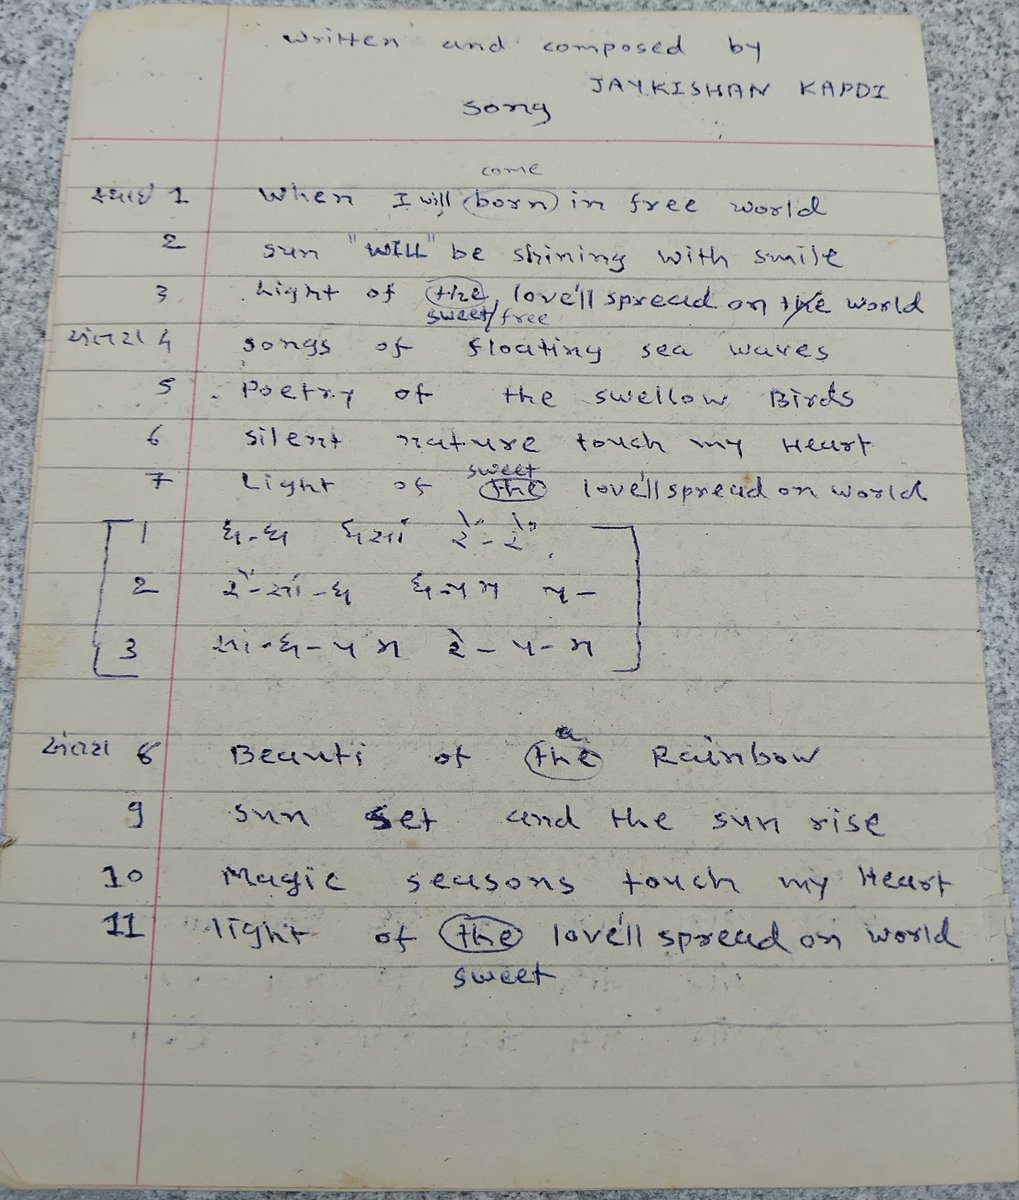 written and composed by
JAYKISHAN KAPDI
song
come
સ્થાઈ 1 When I will born in free world
2 sun "WILL" be shining with smile
3 Light of the love'll spread on the world
sweet/free
અંતરા 4 songs of floating sea waves
5 Poetry of the swellow Birds
6 silent nature touch my Heart
sweet
7 Light of the love'll spread on world
1 ધ-ધ ધસાં રેં-રેં
2 રેં-સાં-ધ ધ-પમ પ-
3 સાં-ધ-પમ રે-પ-મ
a
અંતરા 8 Beauti of the Rainbow
9 sun set and the sun rise
10 Magic seasons touch my Heart
11 light of the love'll spread on world
sweet